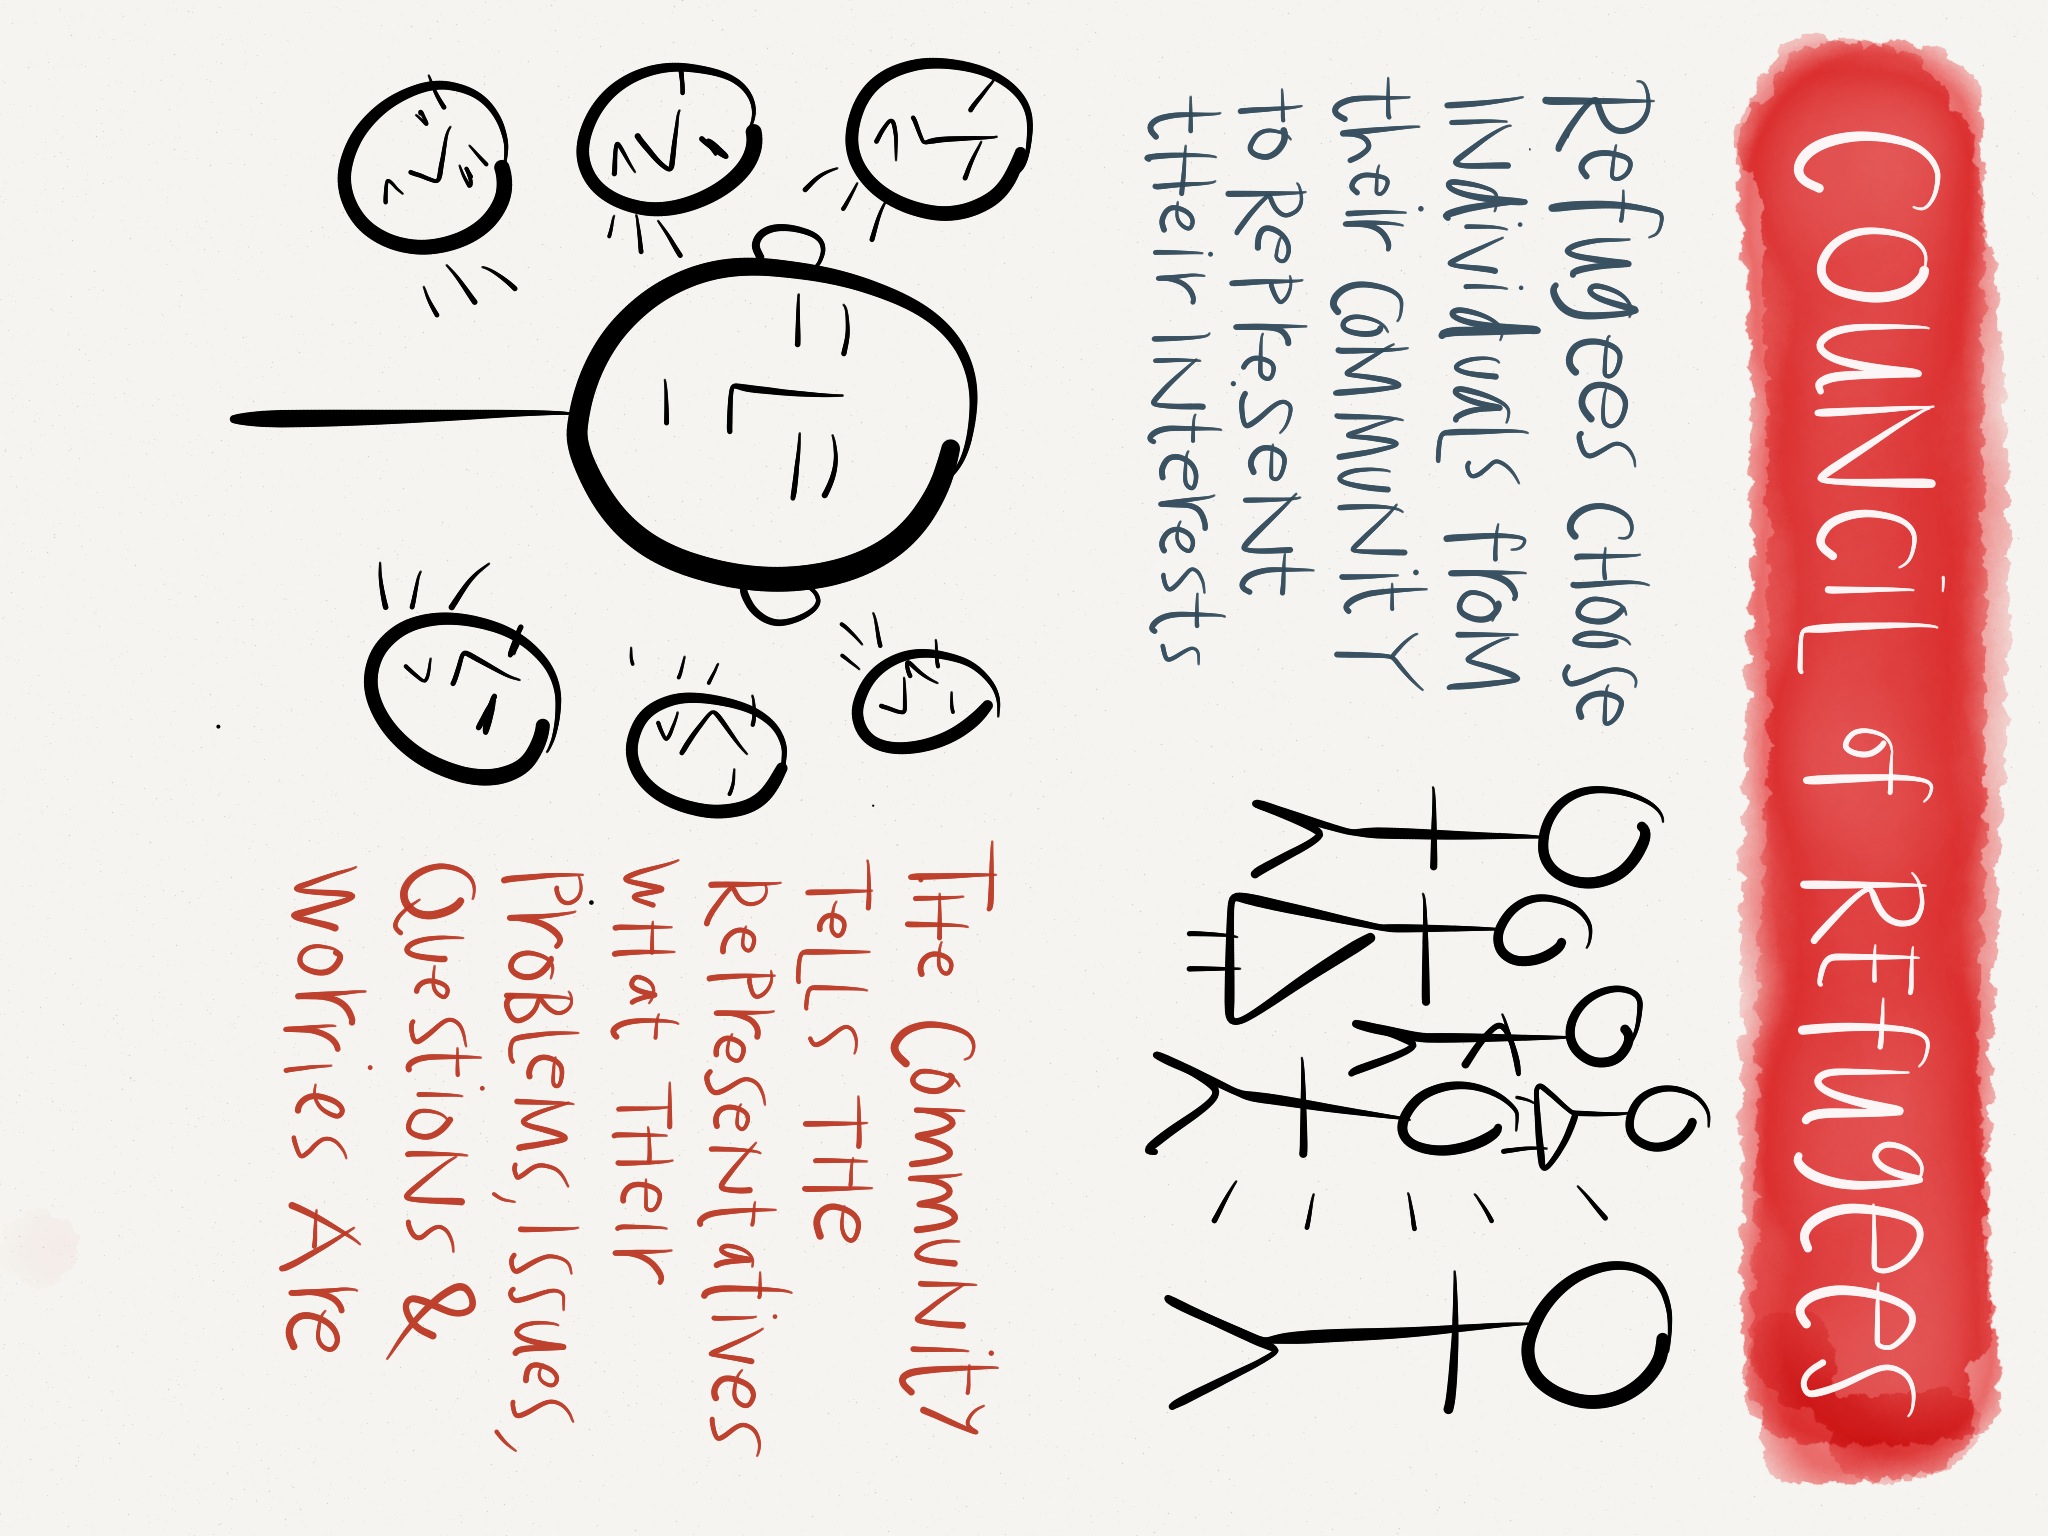 Council of Refugees
Refugees Choose
individuals from
their community
to rep.resent
their interests
The Community
Tells The
Representatives
what their
problems, issues,
Questions &
worries Are